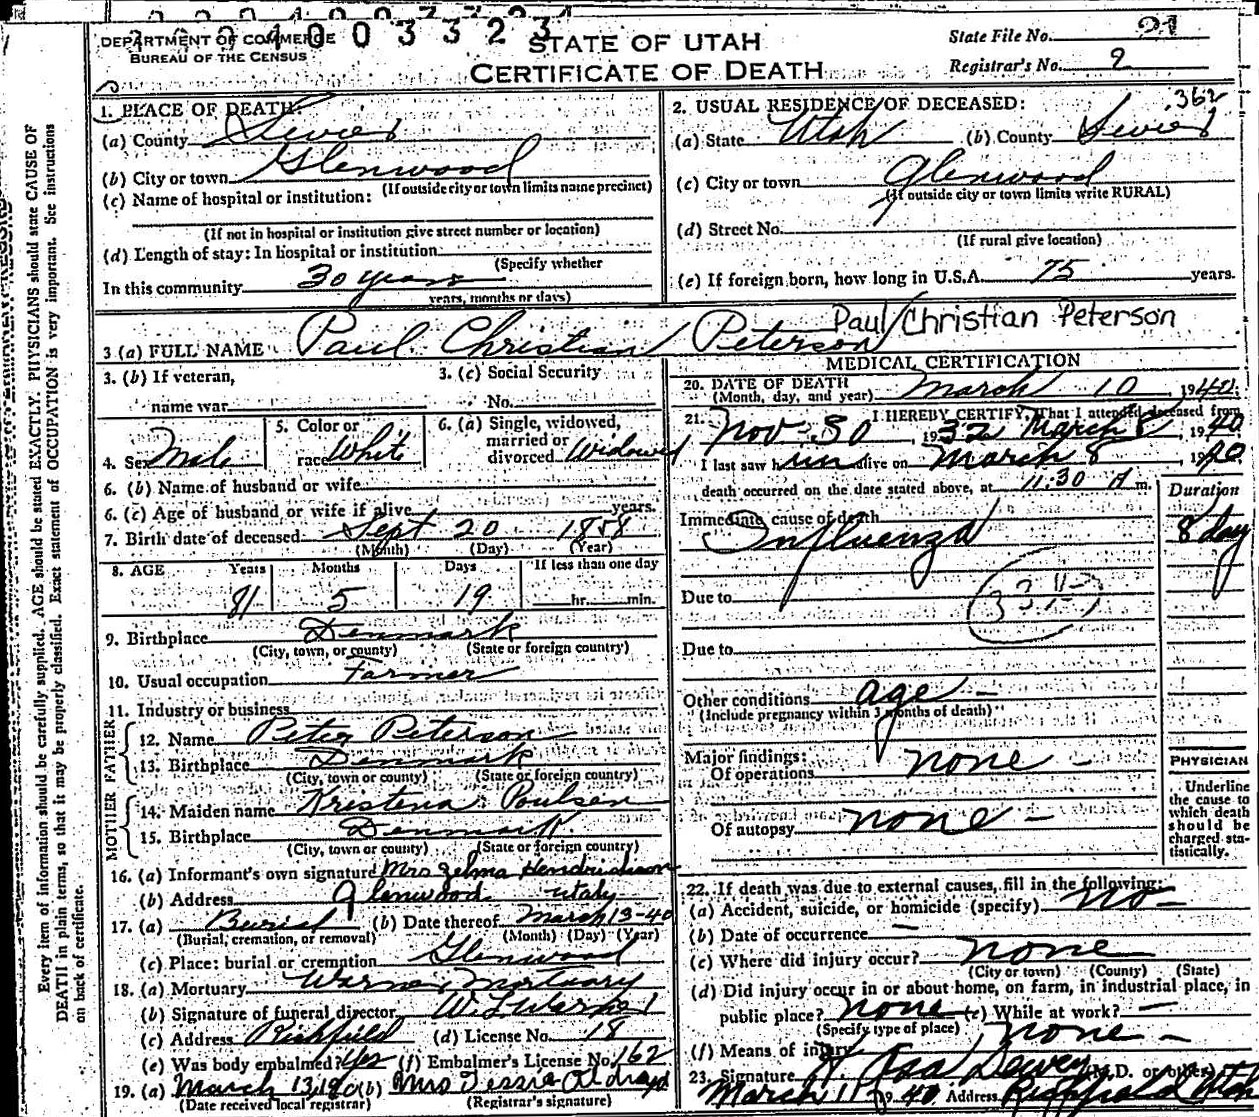 DEPARTMENT OF COMMERCE
BUREAU OF THE CENSUS
STATE OF UTAH
CERTIFICATE OF DEATH
State File No. 21
Registrar's No. 2
Every item of information should be carefully supplied. AGE should be stated EXACTLY. PHYSICIANS should state CAUSE OF
DEATH in plain terms, so that it may be properly classified. Exact statement of OCCUPATION is very important. See instructions
on back of certificate.
1. PLACE OF DEATH:
(a) County Sevier
(b) City or town Glenwood
(If outside city or town limits name precinct)
(c) Name of hospital or institution:
(If not in hospital or institution give street number or location)
(d) Length of stay: In hospital or institution
(Specify whether
In this community 30 years
years, months or days)
2. USUAL RESIDENCE OF DECEASED: .362
(a) State Utah (b) County Sevier
(c) City or town Glenwood
(If outside city or town limits write RURAL)
(d) Street No.
(If rural give location)
(e) If foreign born, how long in U.S.A. 75 years.
3 (a) FULL NAME Paul Christian Peterson Paul/Christian Peterson
3. (b) If veteran,
name war
3. (c) Social Security
No.
4. Sex Male
5. Color or
race White
6. (a) Single, widowed,
married or
divorced Widowed
6. (b) Name of husband or wife
6. (c) Age of husband or wife if alive years.
7. Birth date of deceased Sept 20 1858
(Month) (Day) (Year)
8. AGE Years Months Days If less than one day
81 5 19 hr. min.
9. Birthplace Denmark
(City, town, or county) (State or foreign country)
10. Usual occupation Farmer
11. Industry or business
FATHER
12. Name Peter Peterson
13. Birthplace Denmark
(City, town or county) (State or foreign country)
MOTHER
14. Maiden name Kristena Poulsen
15. Birthplace Denmark.
(City, town or county) (State or foreign country)
16. (a) Informant's own signature Mrs Zelma Hendrickson
(b) Address Glenwood Utah
17. (a) Burial (b) Date thereof March 13-40
(Burial, cremation, or removal) (Month) (Day) (Year)
(c) Place: burial or cremation Glenwood
18. (a) Mortuary Mortuary
(b) Signature of funeral director W. L.
(c) Address Richfield (d) License No. 18
(e) Was body embalmed? Yes (f) Embalmer's License No. 162
19. (a) March 13, (b) Mrs Tessie Oldroyd
(Date received local registrar) (Registrar's signature)
MEDICAL CERTIFICATION
20. DATE OF DEATH March 10 1940
(Month, day, and year)
21. I HEREBY CERTIFY, That I attended deceased from
Nov. 30, March 8, 1940
I last saw him alive on March 8, 1940
death occurred on the date stated above, at 11:30 A m.
Duration
Immediate cause of death
Influenza 8 day
Due to
Due to
Other conditions age -
(Include pregnancy within 3 months of death)
Major findings:
Of operations none -
Of autopsy none -
PHYSICIAN
Underline
the cause to
which death
should be
charged sta-
tistically.
22. If death was due to external causes, fill in the following:
(a) Accident, suicide, or homicide (specify) no -
(b) Date of occurrence -
(c) Where did injury occur? none
(City or town) (County) (State)
(d) Did injury occur in or about home, on farm, in industrial place, in
public place? none (e) While at work? -
(Specify type of place)
(f) Means of injury none -
23. Signature Asa Dewey (M.D. or other)
March 11 1940 Address Richfield Utah